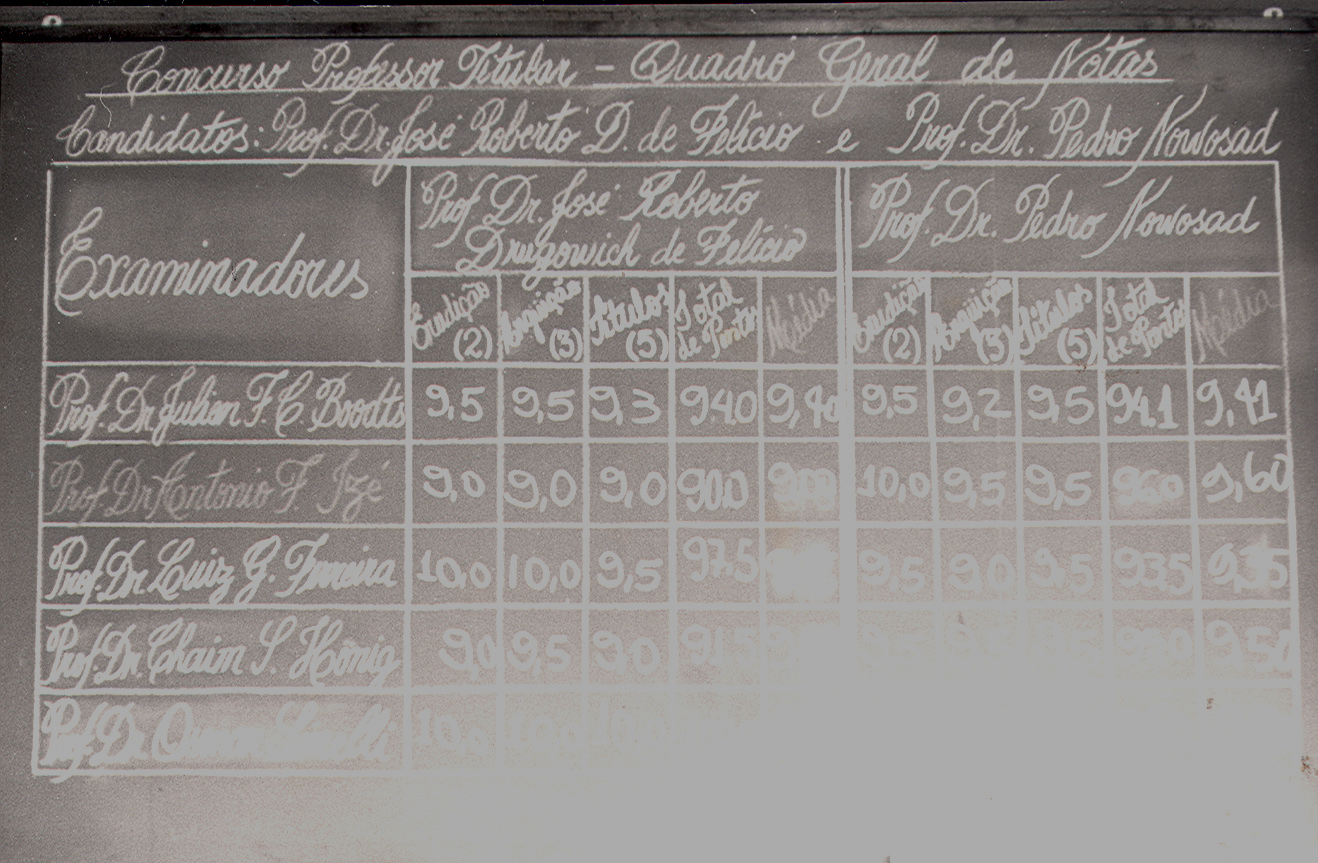 Concurso Professor Titular - Quadro Geral de Notas
Candidatos: Prof. Dr. José Roberto D. de Felício e Prof. Dr. Pedro Nowosad
Examinadores
Prof. Dr. José Roberto
Drugowich de Felício
Prof. Dr. Pedro Nowosad
Erudição (2) Arguição (3) Títulos (5) Total de Pontos Média Erudição (2) Arguição (3) Títulos (5) Total de Pontos Média
Prof. Dr. Julien F. C. Boodts 9,5 9,5 9,3 94.0 9,40 9,5 9,2 9,5 94.1 9,41
Prof. Dr. Antonio F. Izé 9,0 9,0 9,0 90.0 9,00 10,0 9,5 9,5 96.0 9,60
Prof. Dr. Luiz G. Ferreira 10,0 10,0 9,5 97.5 9,5 9,0 9,5 93.5 9,35
Prof. Dr. Chaim S. Hönig 9,0 9,5 9,0 91.5 9,50
Prof. Dr. 10,0